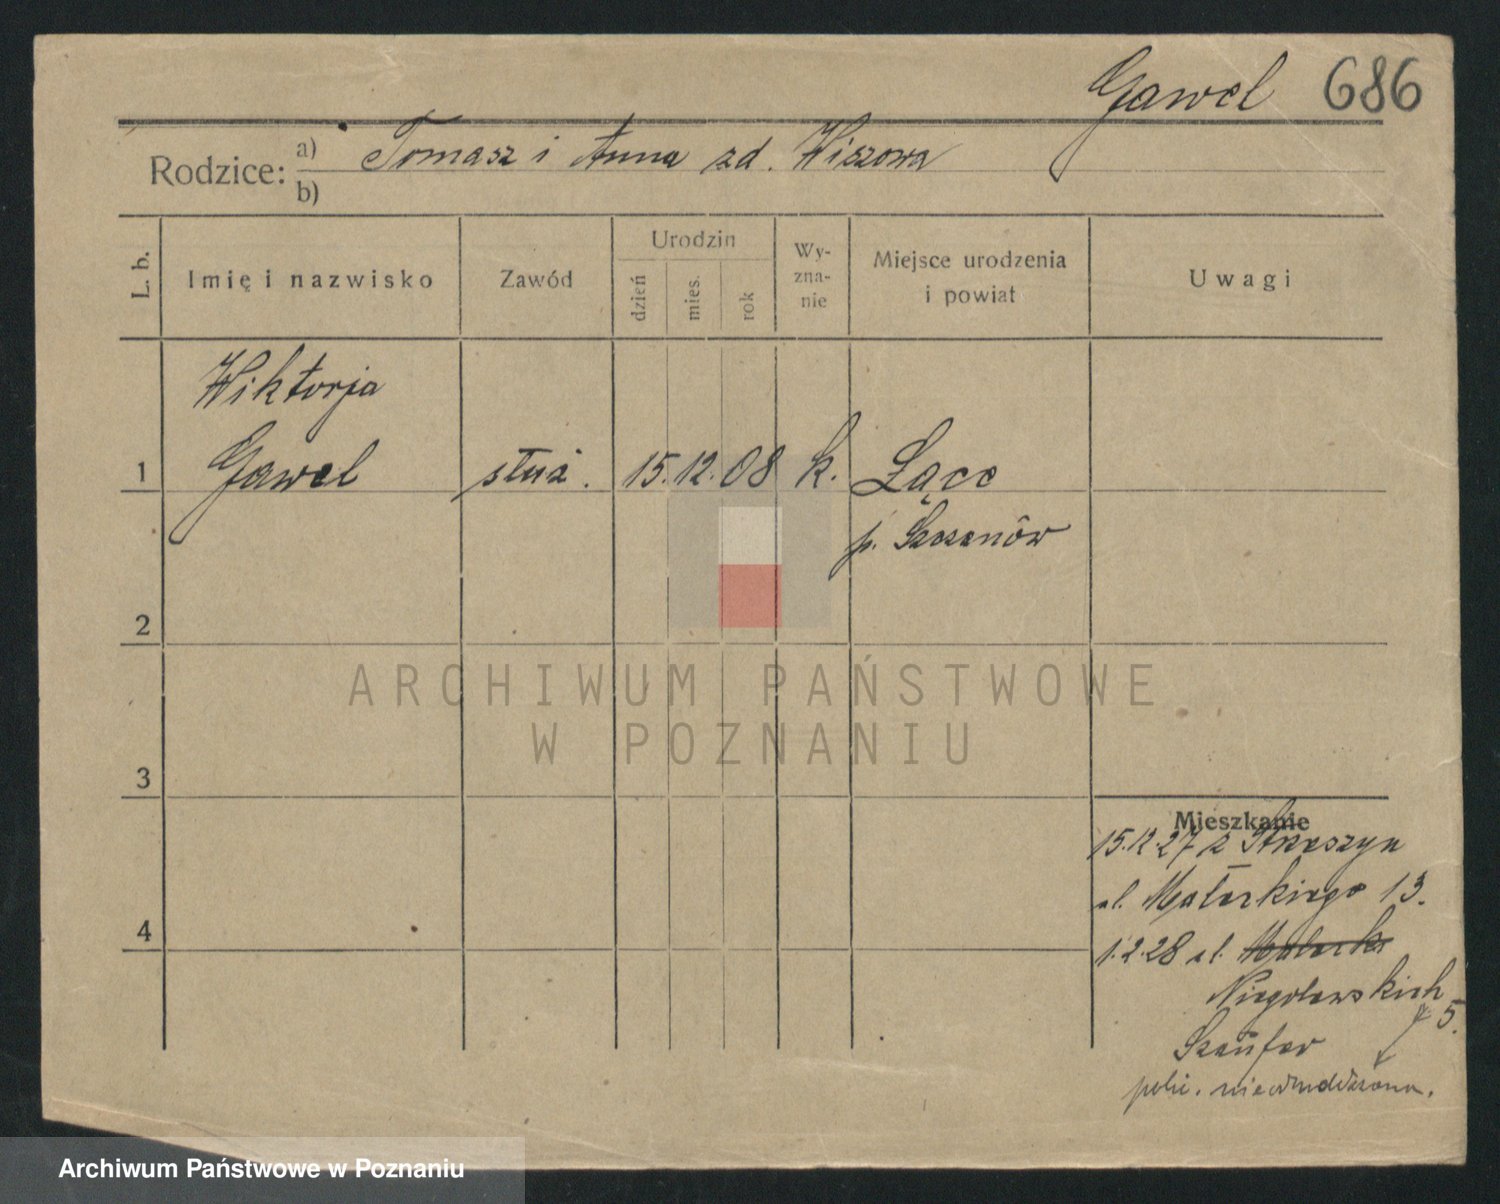 Gawel 686
Rodzice: a) Tomasz i Anna zd. Wiszowa
b)
L. b. Imię i nazwisko Zawód Urodzin dzień mies. rok Wy-zna-nie Miejsce urodzenia i powiat Uwagi
Wiktorja
1 Gawel służ. 15.12.08 k. Łące
p.
2
ARCHIWUM PAŃSTWOWE
W POZNANIU
3
Mieszkanie
15.12.27 z Strzeszyn
ul. 13.
4 1.2.28 ul.
Niegolewskich
5.
Szaufer
polic.
Archiwum Państwowe w Poznaniu